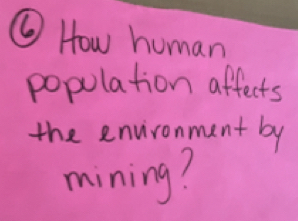 ⑥ How human
population affects
the environment by
mining?